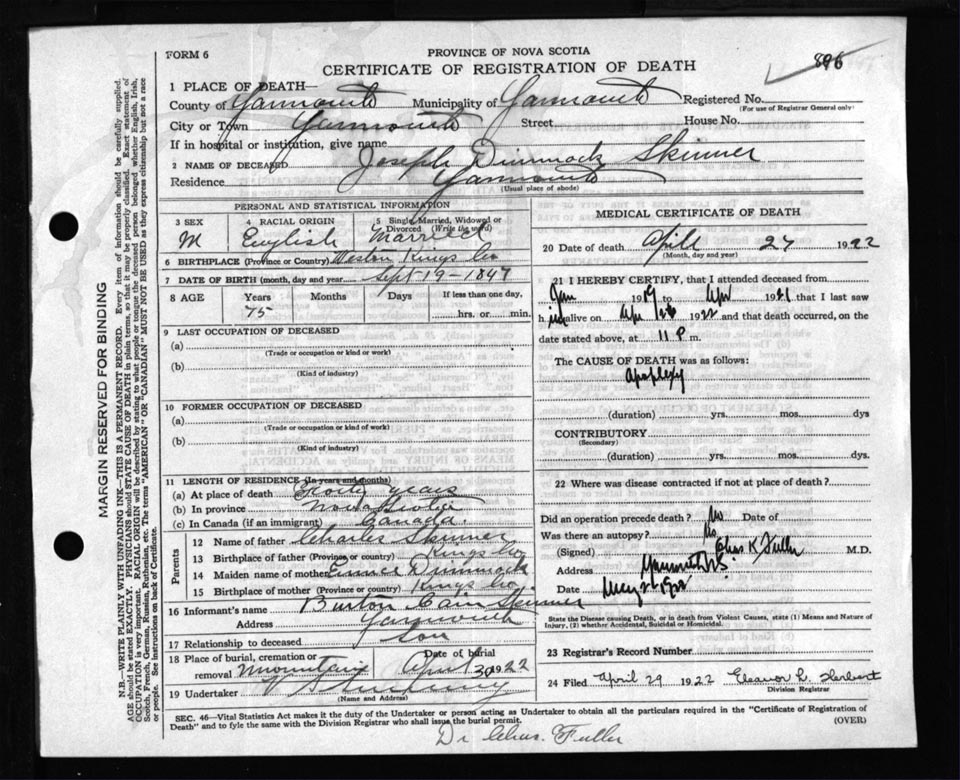 FORM 6
PROVINCE OF NOVA SCOTIA
896
CERTIFICATE OF REGISTRATION OF DEATH
1 PLACE OF DEATH—
County of Yarmouth Municipality of Yarmouth Registered No.
(For use of Registrar General only)
City or Town Yarmouth Street House No.
If in hospital or institution, give name
2 NAME OF DECEASED Joseph Dimmock Skinner
Residence Yarmouth
(Usual place of abode)
PERSONAL AND STATISTICAL INFORMATION
3 SEX 4 RACIAL ORIGIN 5 Single, Married, Widowed or Divorced (Write the word)
M English Married
6 BIRTHPLACE (Province or Country) Weston Kings Co
7 DATE OF BIRTH (month, day and year) Sept 19-1847
8 AGE Years Months Days If less than one day,
75 hrs. or min.
9 LAST OCCUPATION OF DECEASED
(a)
(Trade or occupation or kind or work)
(b)
(Kind of industry)
10 FORMER OCCUPATION OF DECEASED
(a)
(Trade or occupation or kind of work)
(b)
(Kind of industry)
11 LENGTH OF RESIDENCE (In years and months)
(a) At place of death Forty years
(b) In province Nova Scotia
(c) In Canada (if an immigrant) Canada.
Parents
12 Name of father Charles Skinner
13 Birthplace of father (Province or country) Kings Co
14 Maiden name of mother Eunice Dimmock
15 Birthplace of mother (Province or country) Kings Co.
16 Informant's name Burton Cain Skinner
Address Yarmouth
17 Relationship to deceased Son
18 Place of burial, cremation or removal Mountain Date of burial April 30 1922
19 Undertaker V S
(Name and Address)
MEDICAL CERTIFICATE OF DEATH
20 Date of death April 27 1922
(Month, day and year)
21 I HEREBY CERTIFY, that I attended deceased from
Jan 19 to Apr 19 that I last saw
h alive on Apr 26 1922 and that death occurred, on
date stated above, at 11 P m.
The CAUSE OF DEATH was as follows:
Apoplexy
(duration) yrs. mos. dys
CONTRIBUTORY
(Secondary)
(duration) yrs. mos. dys.
22 Where was disease contracted if not at place of death?
Did an operation precede death? No Date of
Was there an autopsy? No
(Signed) Chas K Fuller M.D.
Address Yarmouth N.S.
Date
State the Disease causing Death, or in death from Violent Causes, state (1) Means and Nature of Injury, (2) whether Accidental, Suicidal or Homicidal.
23 Registrar's Record Number
24 Filed April 29 1922 Eleanor L. Herbert
Division Registrar
SEC. 46—Vital Statistics Act makes it the duty of the Undertaker or person acting as Undertaker to obtain all the particulars required in the "Certificate of Registration of
Death" and to fyle the same with the Division Registrar who shall issue the burial permit.
(OVER)
Dr Chas. Fuller
MARGIN RESERVED FOR BINDING
N.B.—WRITE PLAINLY WITH UNFADING INK—THIS IS A PERMANENT RECORD. Every item of information should be carefully supplied.
AGE should be stated EXACTLY. PHYSICIANS should STATE CAUSE OF DEATH in plain terms, so that it may be properly classified. Exact statement of
OCCUPATION is very important. RACIAL ORIGIN will be described by stating to what people or tongue the deceased person belonged whether English, Irish,
Scotch, French, German, Russian, Ruthenian, etc. The terms "AMERICAN" OR "CANADIAN" MUST NOT BE USED as they express citizenship but not a race
or people. See instructions on back of Certificate.